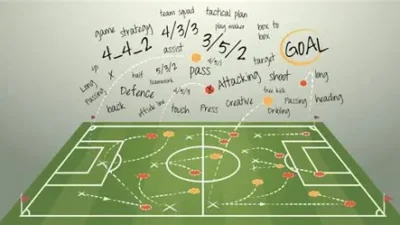 team squad
tactical plan
game
strategy
4/3/3
play maker
box to
box
4_4_2
assist
3/5/2
GOAL
target
long
half
5/3/2
pass
Attacking
shoot
long
Passing
teamwork
4/5/1
free kick
Defence
creative
Passing
heading
back
offside line
touch
Press
Dribling